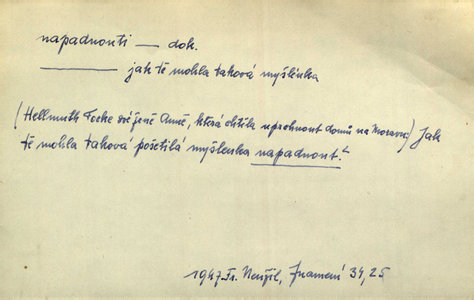 napadnouti — dok.
——— jak tě mohla taková myšlénka
(Hellmuth své ženě Anně, která chtěla uprchnout domů na Moravu) Jak
tě mohla taková pošetilá myšlenka napadnout!
1947 Fr. Neužil, Znamení 34,25